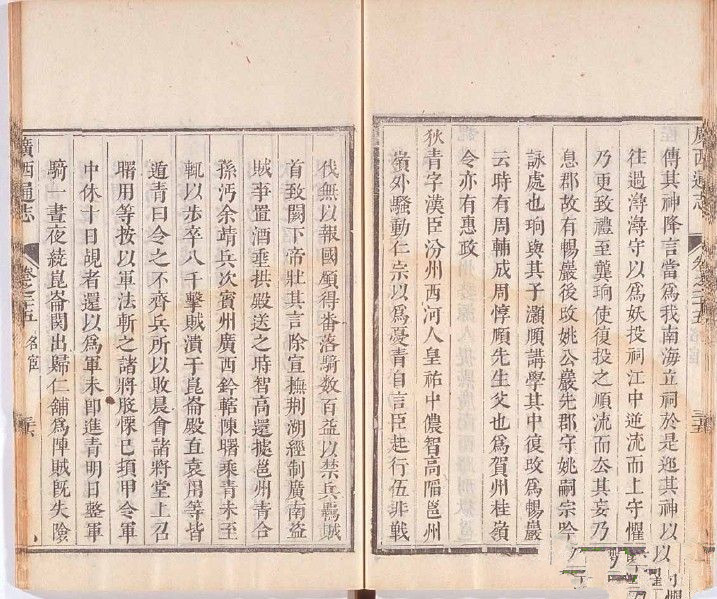 廣西通志 卷之二百三十五
傳其神降言當為我南海立祠於是迎其神以
往過潯潯守以為妖投祠江中逆流而上守懼
乃更致禮至龔珦使復投之順流而去其妄乃
息郡故有暢巖後改姚公巖先郡守姚嗣宗吟
詠處也珦與其子灝順講學其中復改為暢巖
云時有周輔成周惇頤先生父也為賀州桂嶺
令亦有惠政
狄青字漢臣汾州西河人皇祐中儂智高陷邕州
嶺外騷動仁宗以為憂青自言臣起行伍非戰
伐無以報國願得蕃落騎數百益以禁兵羈賊
首致闕下帝壯其言除宣撫荆湖經制廣南盜
賊事置酒垂拱殿送之時智高還據邕州青合
孫沔余靖兵次賓州廣西鈐轄陳曙乘青未至
輒以步卒八千擊賊潰于崑崙殿直袁用等皆
遁青曰令之不齊兵所以敗晨會諸將堂上召
曙用等按以軍法斬之諸將股慄已頃甲令軍
中休十日覘者還以為軍未即進青明日整軍
騎一晝夜繞崑崙關出歸仁舖為陣賊旣失險
廣西通志 卷之 五 名宦 三六